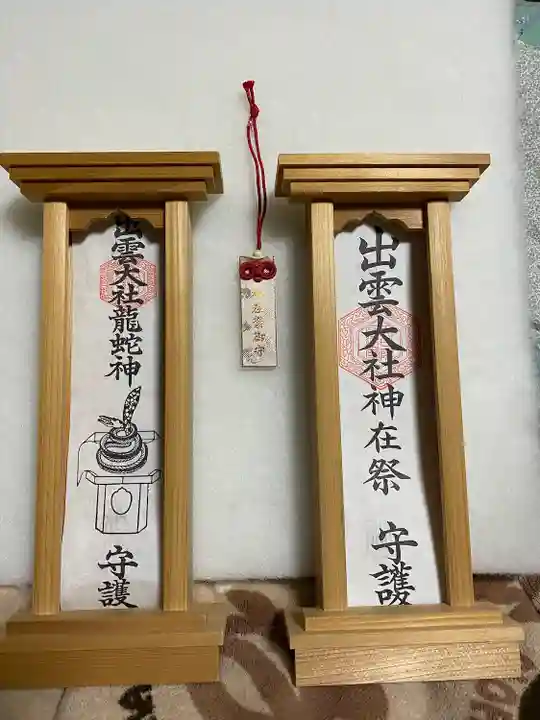 出雲大社龍蛇神
守護
神在祭御守
出雲大社神在祭
守護